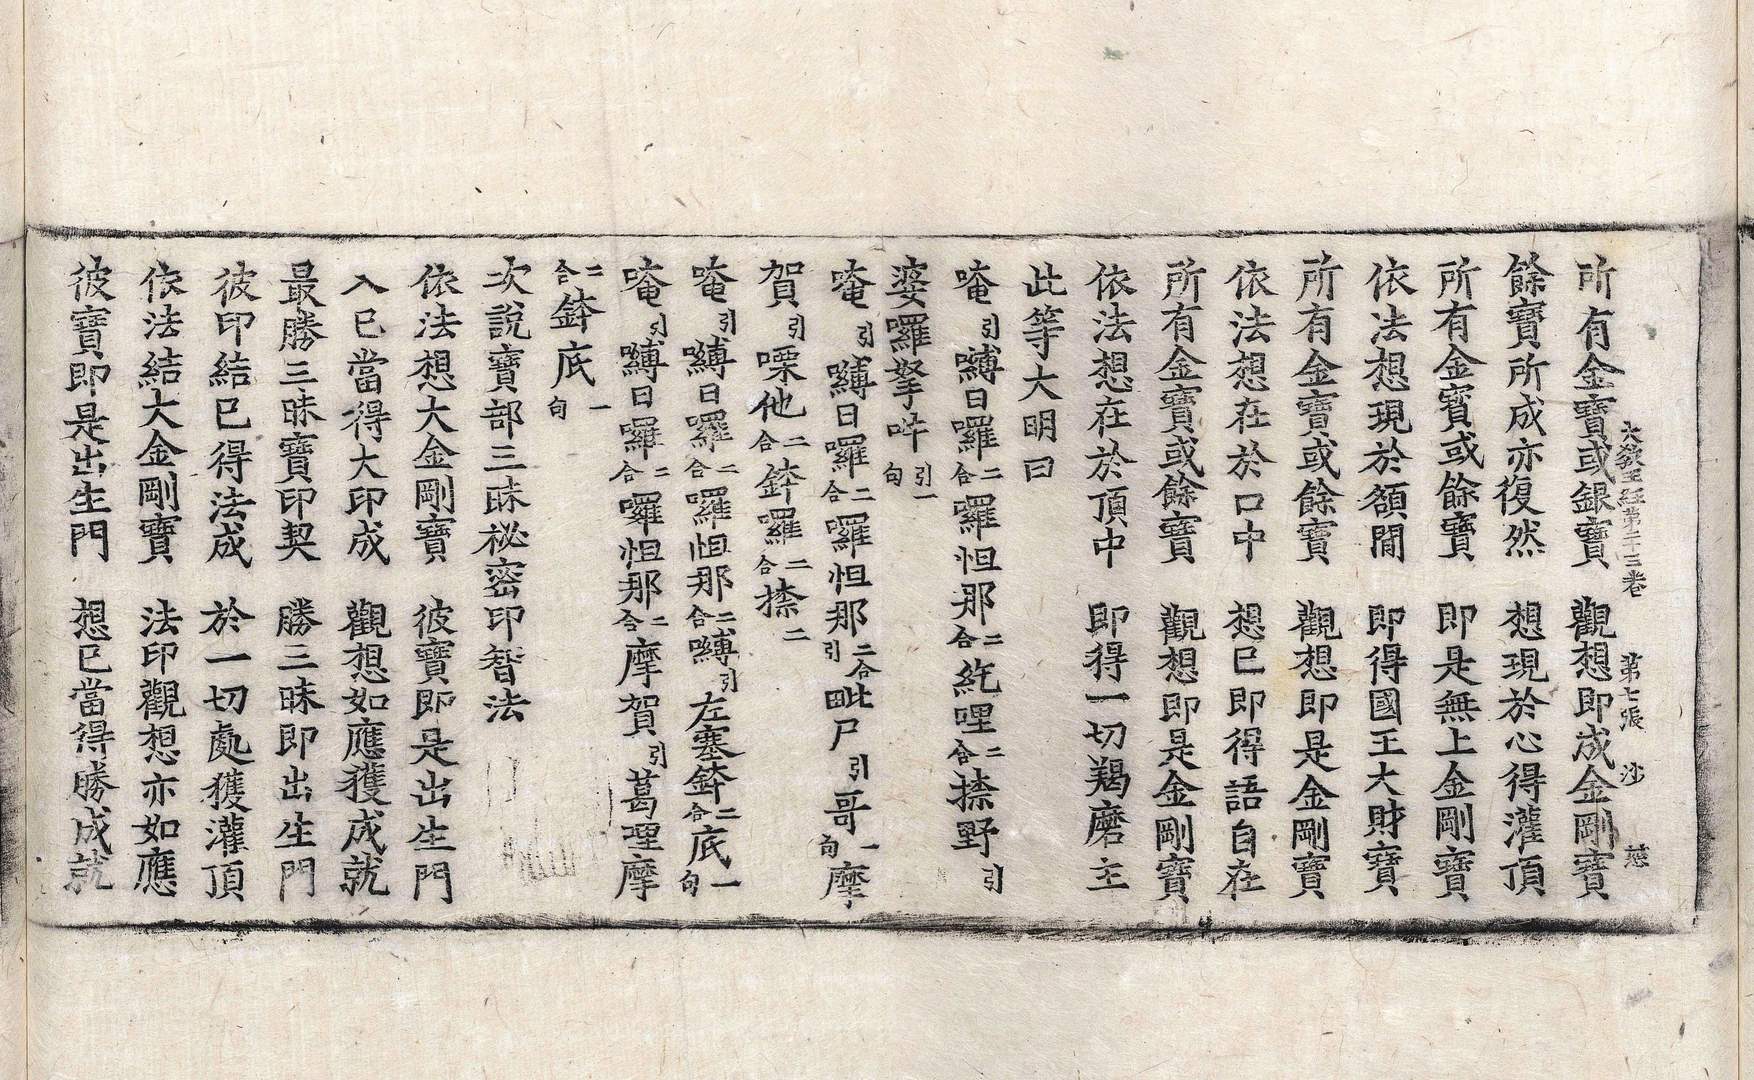 大教王經第二十三卷 第七張 沙
所有金寶或銀寶 觀想即成金剛寶
餘寶所成亦復然 想現於心得灌頂
所有金寶或餘寶 即是無上金剛寶
依法想現於額間 即得國王大財寶
所有金寶或餘寶 觀想即是金剛寶
依法想在於口中 想已即得語自在
所有金寶或餘寶 觀想即是金剛寶
依法想在於頂中 即得一切羯磨主
此等大明曰
唵引嚩日囉二合囉怛那二合紇哩二合捺野引
婆囉拏吽引一句
唵引嚩日囉二合囉怛那二合引毗尸引哥一句摩
賀引㗚他二合鉢囉二合捺二
唵引嚩日囉二合囉怛那二合嚩引左塞鉢二合底一句
唵引嚩日囉二合囉怛那二合摩賀引葛哩摩
二合鉢底一句
次說寶部三昧秘密印智法
依法想大金剛寶 彼寶即是出生門
入已當得大印成 觀想如應獲成就
最勝三昧寶印契 勝三昧即出生門
彼印結已得法成 於一切處獲灌頂
依法結大金剛寶 法印觀想亦如應
彼寶即是出生門 想已當得勝成就